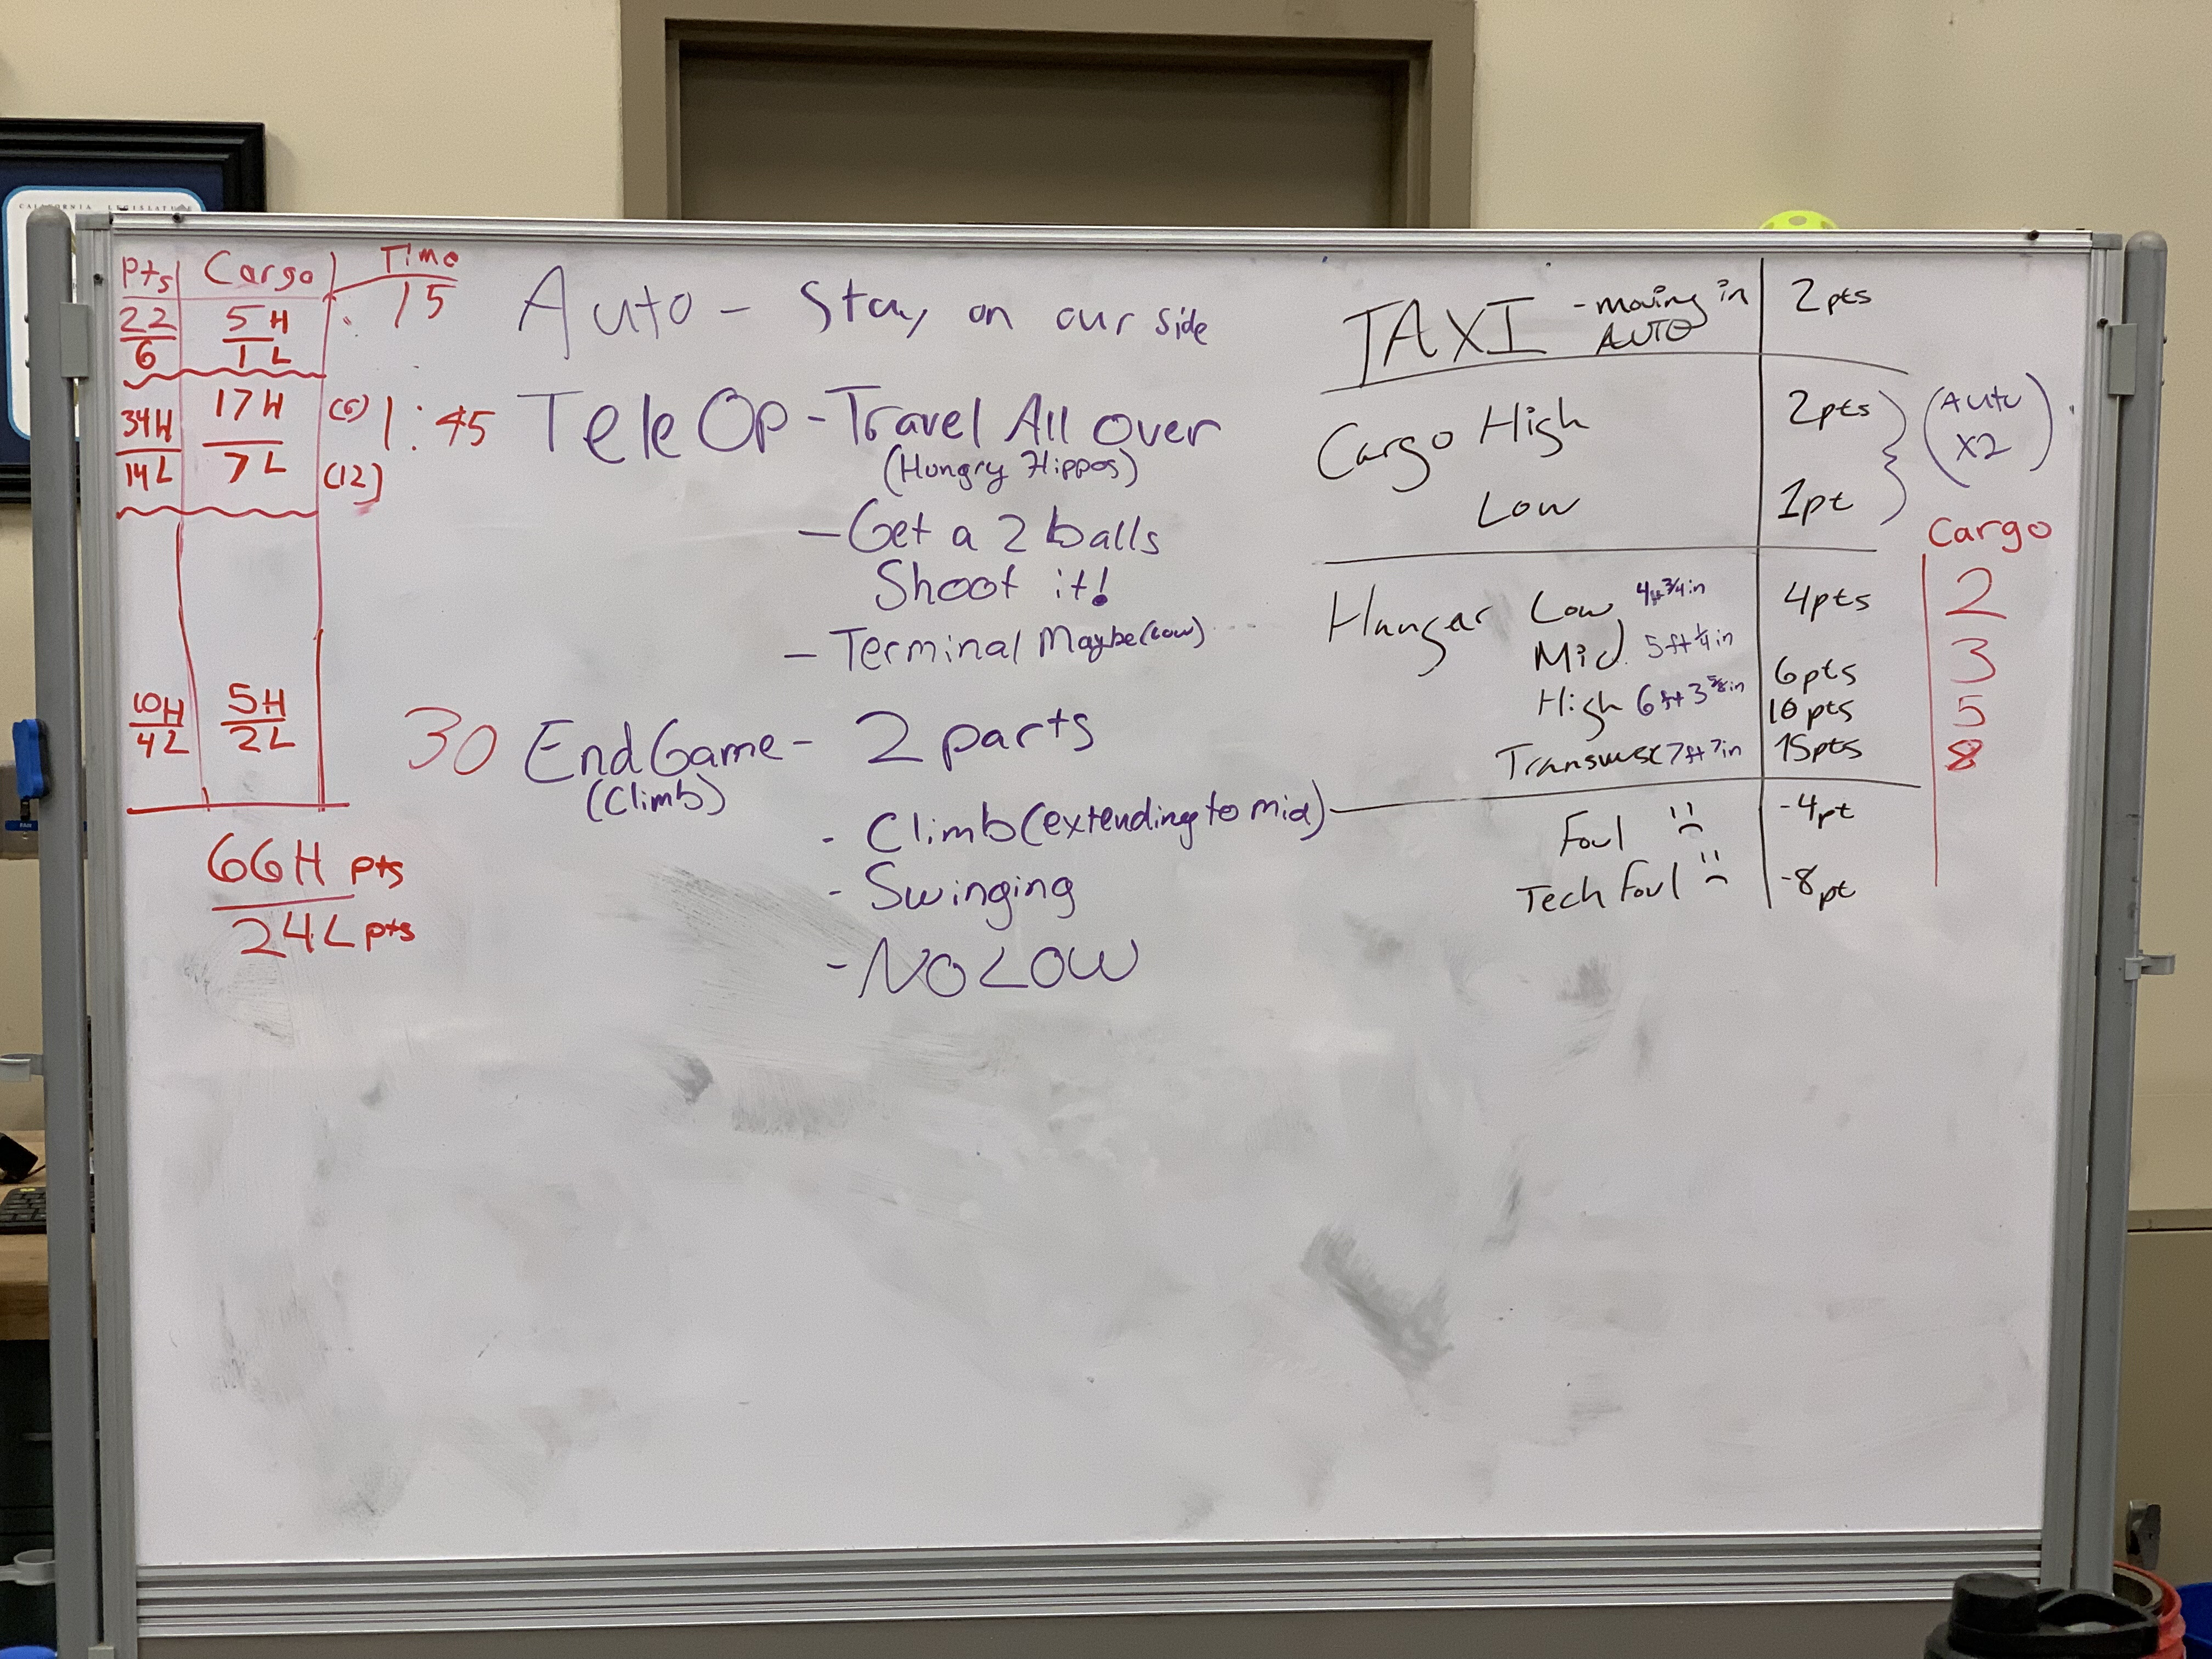 CALIFORNIA LEGISLATURE
Pts Cargo Time
22 5H :15
6 1L
34H 17H (6) 1:45
14L 7L (12)
10H 5H 30
4L 2L
66H pts
24L pts
Auto - Stay on our side
TeleOp - Travel All Over
(Hungry Hippos)
- Get a 2 balls
Shoot it!
- Terminal Maybe (Low)
EndGame - 2 parts
(Climb)
- Climb (extending to mid)
- Swinging
- NO LOW
TAXI - moving in 2pts
AUTO
Cargo High 2pts (Auto
Low 1pt X2)
Cargo
Hangar Low 4ft 3/4in 4pts 2
Mid 5ft 1/4in 6pts 3
High 6ft 3 5/8in 10pts 5
Transverse 7ft 7in 15pts 8
Foul :( -4pt
Tech Foul :( -8pt